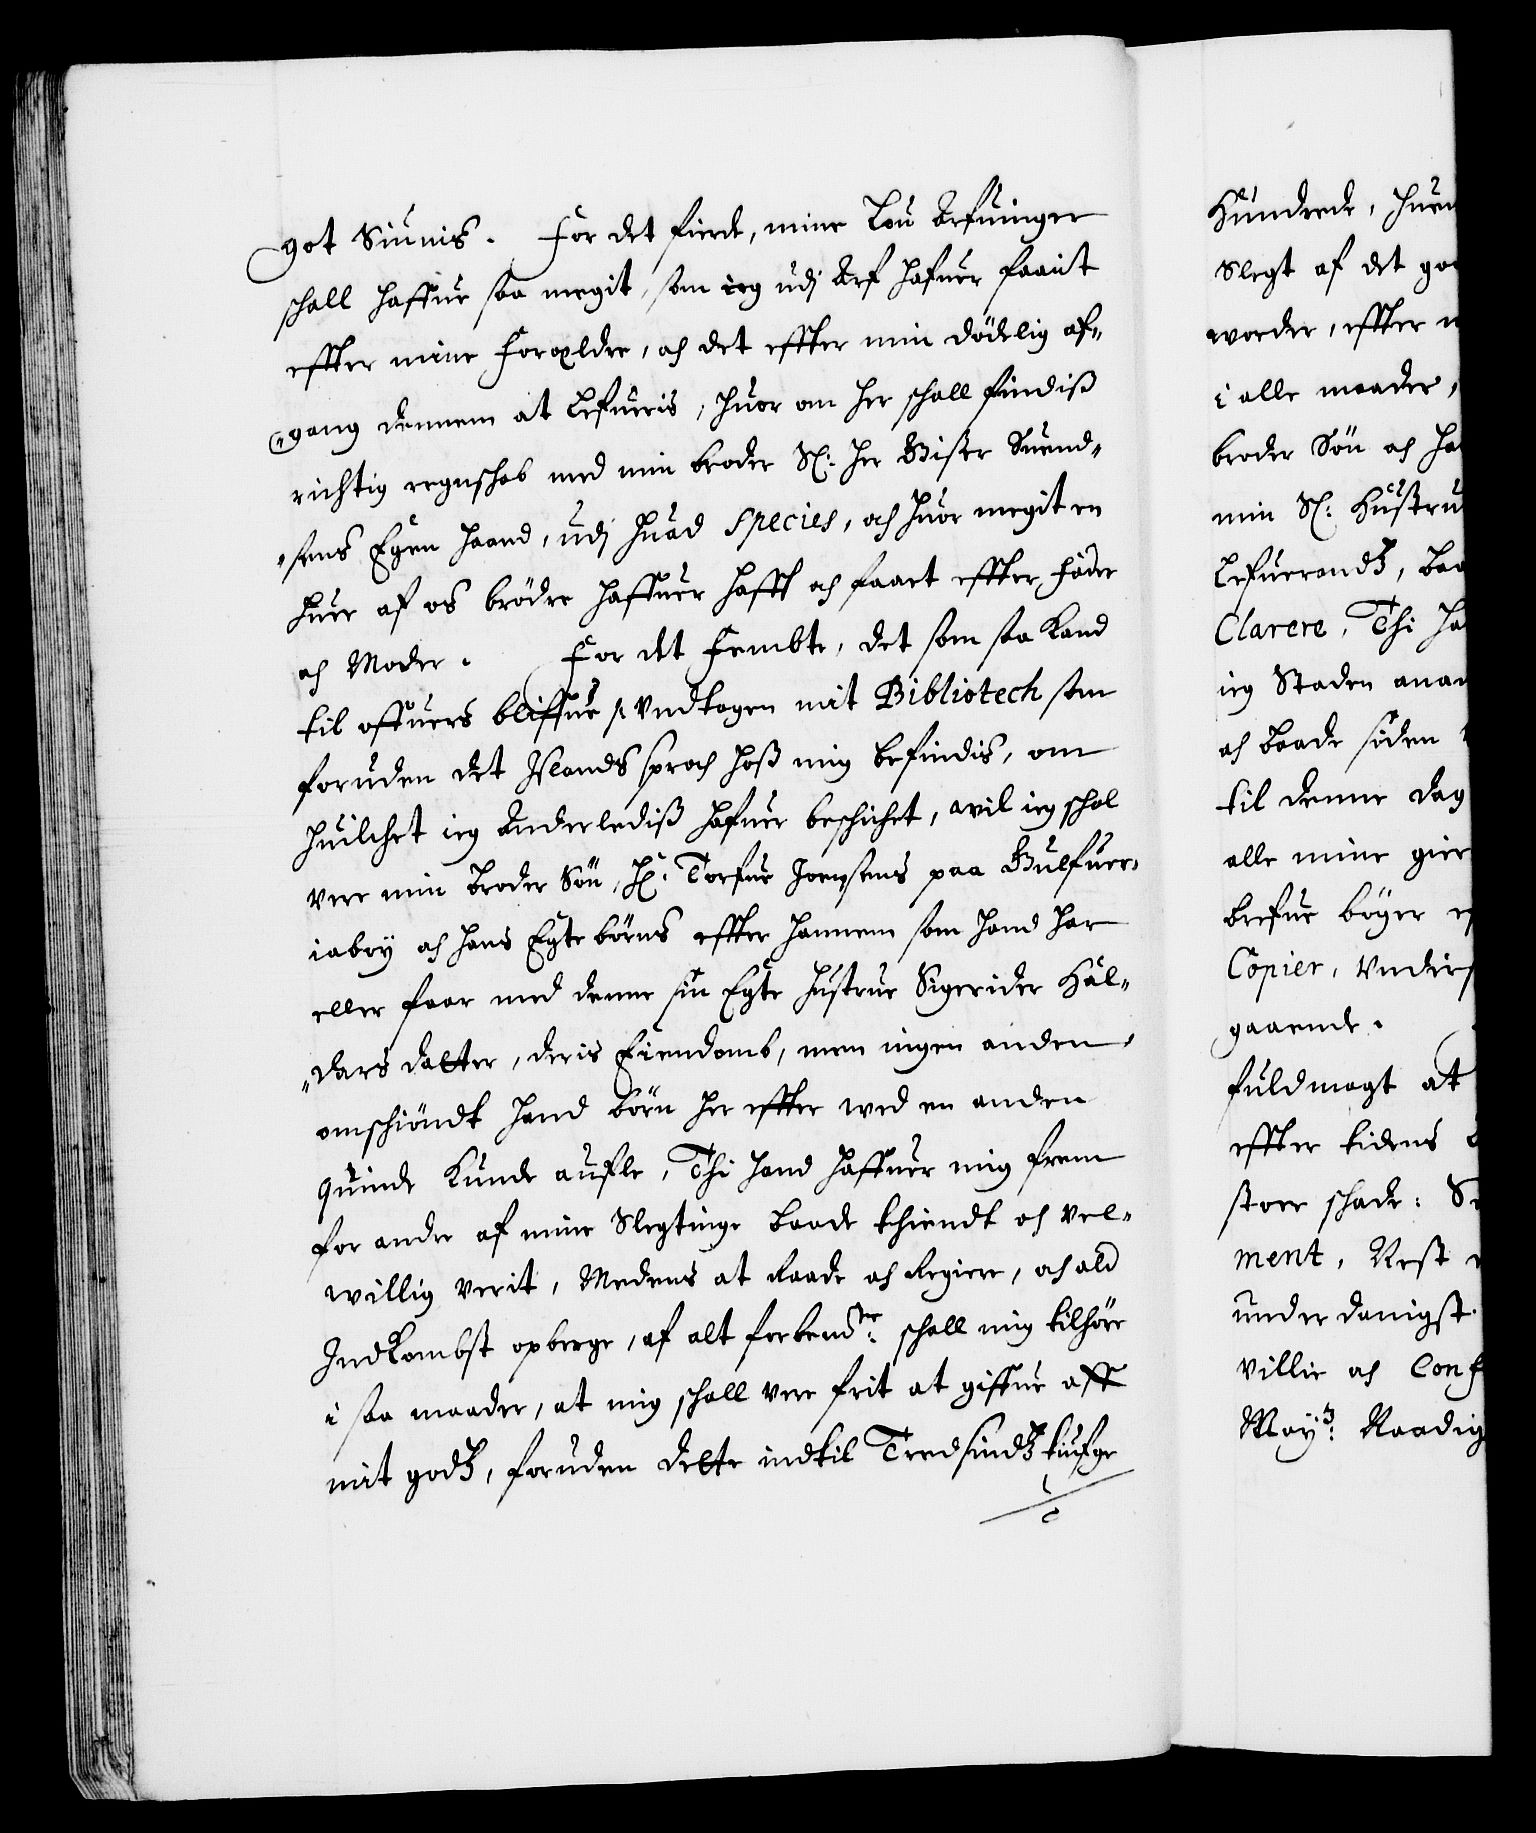 got Siunis. For det fierde, mine Lou Arfuinger
schall haffue saa megit, som ieg udj Arf hafuer faait
effter mine Foroeldre, och det effter min dödelig af-
gang dennem at Lefueris, huor om her schall findiß
richtig regnschab med min broder Sl: her Gißer Suend-
sens Egen haand, udj huad species, och huor megit en
huer af os brödre haffuer hafft och faaet effter Fader
och Moder. For det Fembte, det som saa kand
til offuers bliffue / Undtagen mit Bibliotech som
foruden det Islands sproch hoß mig befindis, om
huilchet ieg Anderlediß hafuer beschichet, wil ieg schal
vere min broder Sön, Hr: Torfue Joensens paa Gulfuer-
iaböy och hans Egte börns effter hannem som hand har
eller faar med denne sin Egte hustrue Sigerider Hal-
dars datter, deris Eiendomb, men ingen anden
omschiöndt hand börn her effter wed en anden
quinde kunde aufle, Thi hand haffuer mig frem
for andre af mine Slegtinge baade thiendt och vel-
willig verit, Medens at Raade och Regiere, och ald
Indkombst opberge, af alt forbend:te schall mig tilhöre
i saa maader, at mig schall vere frit at giffue aff
mit godß, foruden dette indtil Tredsindß tiufge
Hundrede, huem
Slegt af det go
worder, effter m
i alle maader,
broder Sön och ha
min Sl: Hustru
Lefuerandß, baa
Clarere, Thi ha
ieg Staden ana
och baade siden
til denne dag
alle mine gier
brefue böger
Copier, Unders
gaaende.
fuldmagt at
effter tidens
store schade: S
ment, Rest
under danigst
villie och Conf
May:ts Naadig